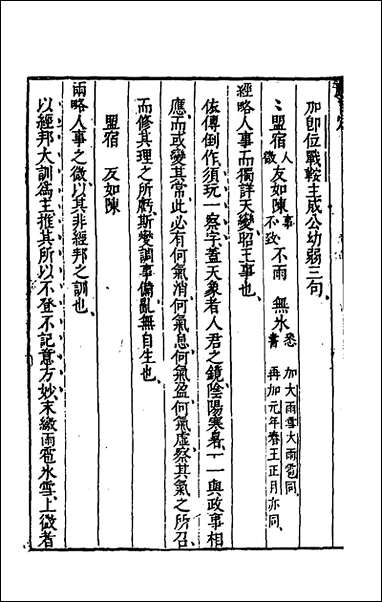 加卽位戰鞍主成公幼弱三句
盟宿 人微 友如陳 事不致 不雨 無氷 悉書 加大雨雪大雨雹同 再加元年春王正月亦同
經略人事而獨詳天變昭王事也
依傳倒作須玩一察字蓋天象者人君之鏡陰陽寒暑一一與政事相
應而或變其常此必有何氣消何氣息何氣盈何氣虛察其氣之所召
而修其理之所虧斯變調事備亂無自生也
盟宿 友如陳
兩略人事之微以其非經邦之訓也
以經邦大訓爲主推其所以不登不記意方妙末繳雨雹氷雪上微者